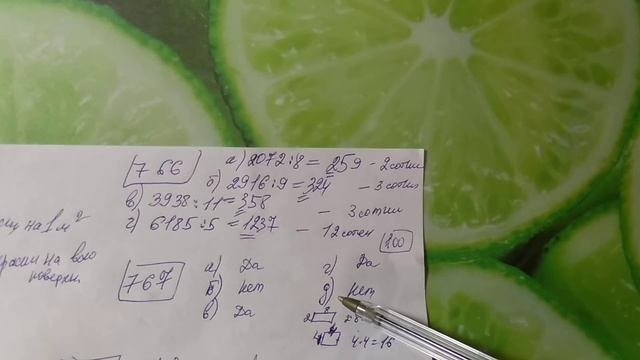 766
а) 2072:8 = 259 - 2 сотни
б) 2916:9 = 324 - 3 сотни
в) 3938:11 = 358 - 3 сотни
г) 6185:5 = 1237 - 12 сотен
на 1 м²
100
767
а) Да
б) нет
в) Да
г) Да
д) нет
на всю
4·4=16